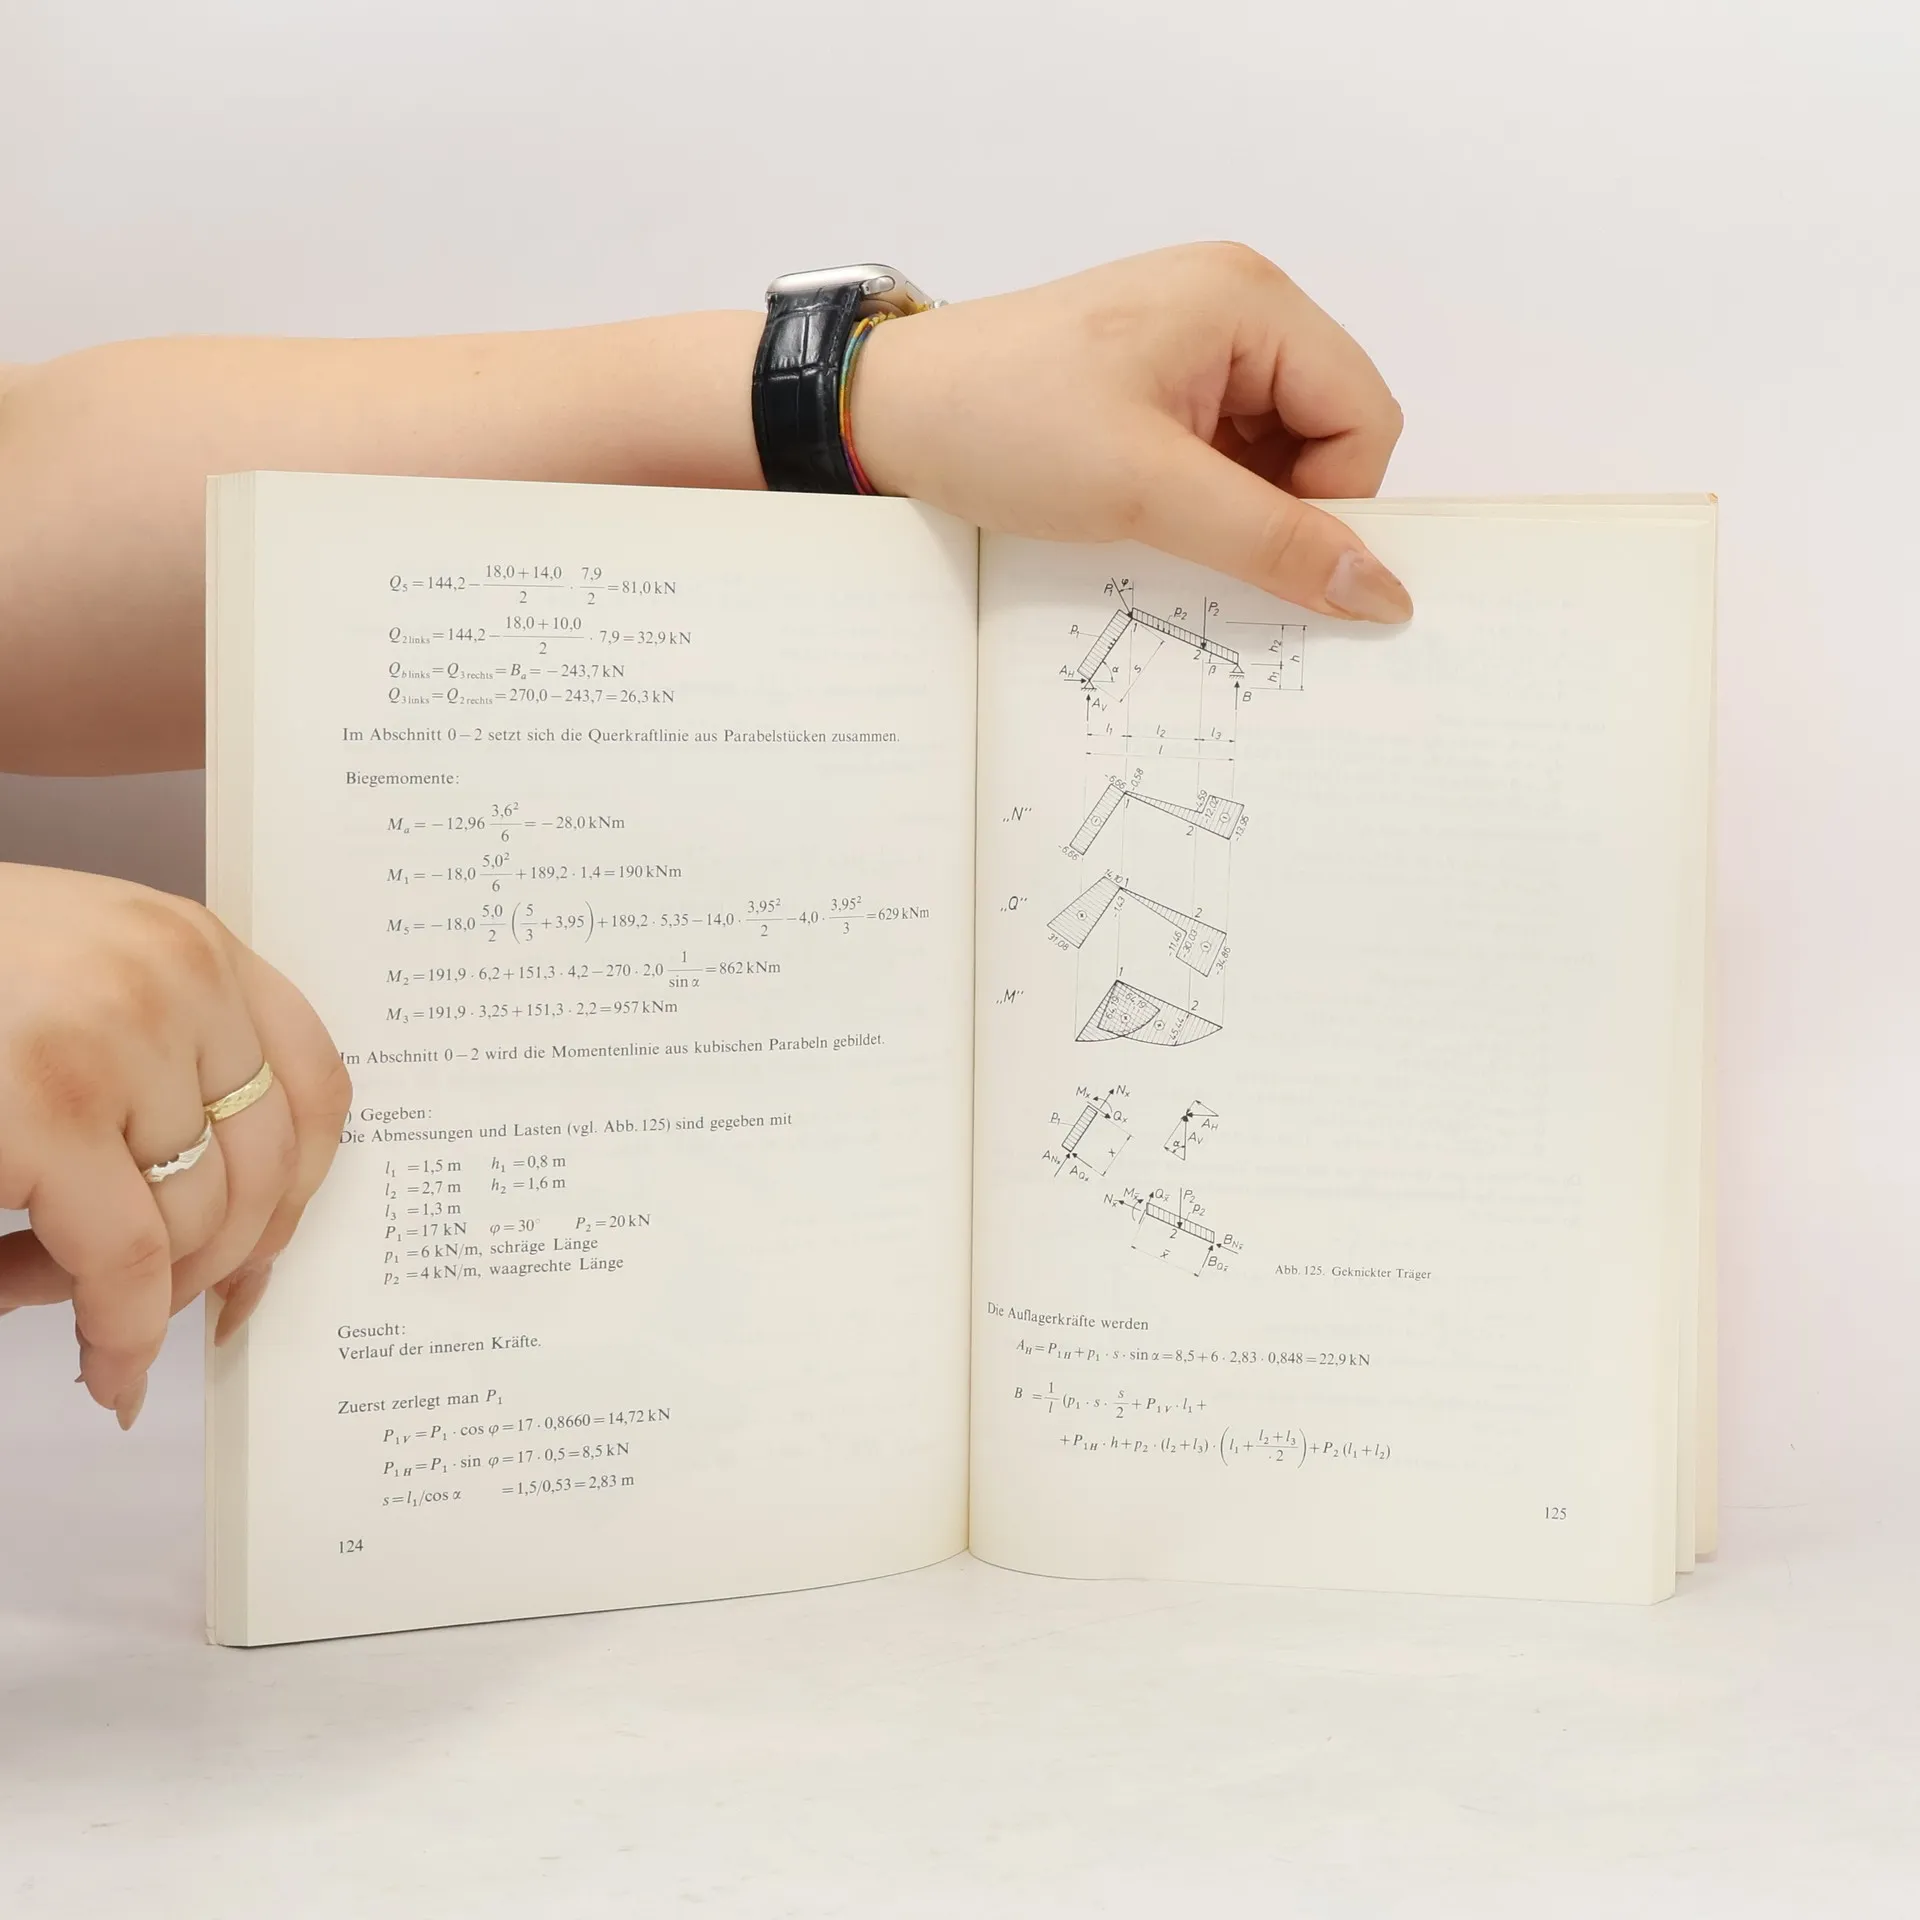 Q₅ = 144,2 − (18,0 + 14,0)/2 · 7,9/2 = 81,0 kN
Q₂ links = 144,2 − (18,0 + 10,0)/2 · 7,9 = 32,9 kN
Q₆ links = Q₃ rechts = Bₐ = − 243,7 kN
Q₃ links = Q₂ rechts = 270,0 − 243,7 = 26,3 kN
Im Abschnitt 0 – 2 setzt sich die Querkraftlinie aus Parabelstücken zusammen.
Biegemomente:
Mₐ = − 12,96 3,6²/6 = − 28,0 kNm
M₁ = − 18,0 5,0²/6 + 189,2 · 1,4 = 190 kNm
M₅ = − 18,0 5,0/2 (5/3 + 3,95) + 189,2 · 5,35 − 14,0 · 3,95²/2 − 4,0 · 3,95²/3 = 629 kNm
M₂ = 191,9 · 6,2 + 151,3 · 4,2 − 270 · 2,0 1/sin α = 862 kNm
M₃ = 191,9 · 3,25 + 151,3 · 2,2 = 957 kNm
Im Abschnitt 0 – 2 wird die Momentenlinie aus kubischen Parabeln gebildet.
) Gegeben:
Die Abmessungen und Lasten (vgl. Abb. 125) sind gegeben mit
l₁ = 1,5 m h₁ = 0,8 m
l₂ = 2,7 m h₂ = 1,6 m
l₃ = 1,3 m
P₁ = 17 kN φ = 30° P₂ = 20 kN
p₁ = 6 kN/m, schräge Länge
p₂ = 4 kN/m, waagrechte Länge
Gesucht:
Verlauf der inneren Kräfte.
Zuerst zerlegt man P₁
P₁V = P₁ · cos φ = 17 · 0,8660 = 14,72 kN
P₁H = P₁ · sin φ = 17 · 0,5 = 8,5 kN
s = l₁/cos α = 1,5/0,53 = 2,83 m
124
P₁ φ
p₁ 1 p₂ P₂
A_H α s 2 β h₁ h₂ h
A_V B
l₁ l₂ l₃
l
„N“
-6,66 -0,58 1 -4,59 -12,02 2 -13,95
-6,66
„Q“
14,10 1 -1,43 2
31,08 -11,46 -30,03 -34,86
„M“
1 64,19 64,19 2 45,44
Mₓ Nₓ
p₁ Qₓ A_H
x α A_V
A_Nx A_Qx
N_x̄ M_x̄ Q_x̄ P₂ p₂
2 B_Nx̄
x̄ B_Qx̄
Abb. 125. Geknickter Träger
Die Auflagerkräfte werden
A_H = P₁H + p₁ · s · sin α = 8,5 + 6 · 2,83 · 0,848 = 22,9 kN
B = 1/l (p₁ · s · s/2 + P₁V · l₁ +
+ P₁H · h + p₂ · (l₂ + l₃) · (l₁ + (l₂ + l₃)/2) + P₂ (l₁ + l₂)
125